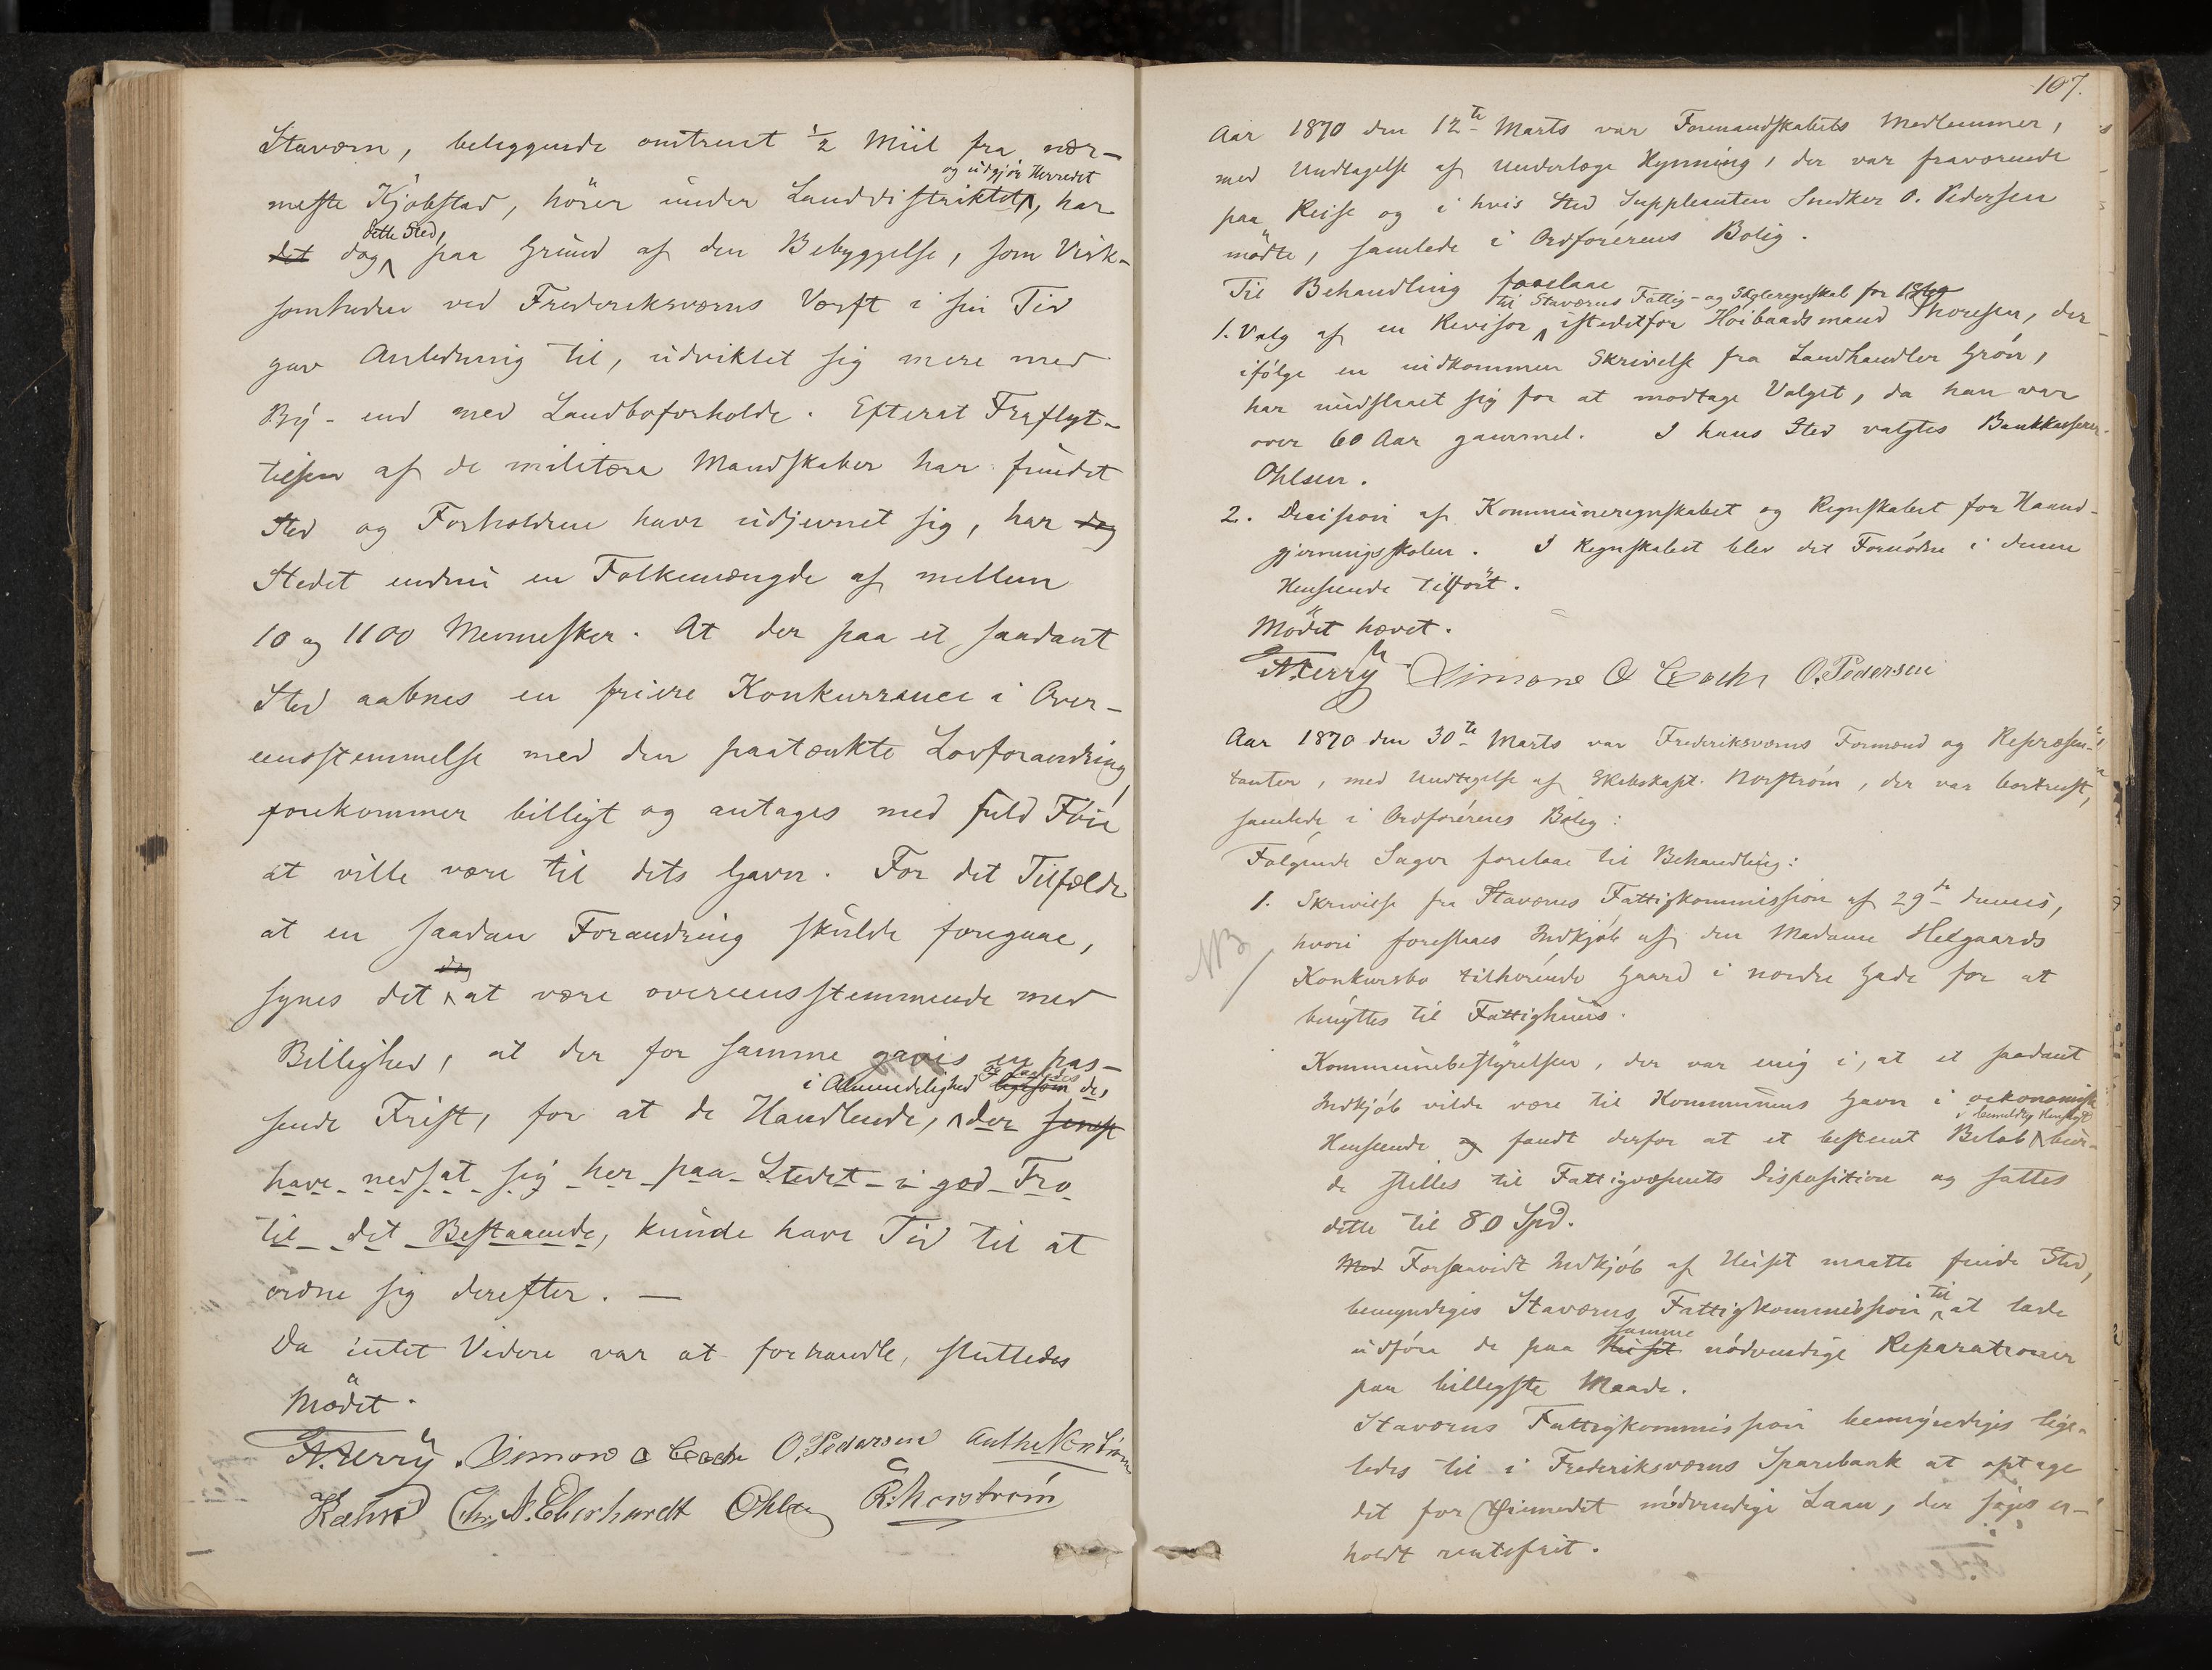 Staværn, beliggende omtrent ½ Miil fra nær-
og udgjör Herredet
meste Kjöbstad, hörer under Landdistriktet, har
dette Sted,
det dog paa Grund af den Bebyggelse, som Virk-
somheden ved Frederiksværns Værft i sin Tid
gav Anledning til, udviklet sig mere med
By- end med Landboforholde. Efterat Fraflyt-
telsen af de militære Mandskaber har fundet
Sted og Forholdene have udjevnet sig, har dog
Stedet endnu en Folkemængde af mellem
10 og 1100 Mennesker. At der paa et saadant
Sted aabnes en friere Konkurrance i Over-
eensstemmelse med den paatænkte Lovforandring,
forekommer billigt og antages med fuld Föie
at ville være til dets Gavn. For det Tilfælde
at en saadan Forandring skulde foregaae,
dog
synes det at være overeensstemmende med
Billighed, at der for samme gaves en pas-
i Almindelighed ligesom de,
sende Frist, for at de Handlende, der senest
have nedsat sig her paa Stedet i god Tro
til det Bestaaende, kunde have Tid til at
ordne sig derefter. —
Da intet Videre var at forhandle, sluttedes
Mödet.
Simon O. Pedersen
Chr. A. Eberhardt Ohlsen R. Norström
107.
Aar 1870 den 12te Marts var Formandskabets Medlemmer,
med Undtagelse af Underlæge Hynning, der var fraværende
paa Reise og i hvis Sted Suppleanten Snedker O. Pedersen
mödte, samlede i Ordförerens Bolig.
Til Behandling forelaae
til Staværns Fattig- og Skoleregnskab for
1. Valg af en Revisor istedetfor Höibaadsmand Thoresen, der
ifölge en indkommen Skrivelse fra Landhandler Grön,
har undslaaet sig for at modtage Valget, da han var
over 60 Aar gammel. I hans Sted valgtes Bankkasserer
Ohlsen.
2. Decision af Kommuneregnskabet og Regnskabet for Haand-
gjerningsskolen. I Regnskabet blev det Fornödne i denne
Henseende tilfört.
Mödet hævet.
Simon O. Pedersen
Aar 1870 den 30te Marts var Frederiksværns Formænd og Repræsen-
tanter, med Undtagelse af Skibskapt. Norström, der var bortreist,
samlede i Ordförerens Bolig:
Fölgende Sager forelaae til Behandling:
1. Skrivelse fra Staværns Fattigkommission af 29de dennes,
NB
hvori foreslaaes Indkjöb af den Madame Helgaards
Konkursbo tilhörende Gaard i nordre Gade for at
benyttes til Fattighuus.
Kommunebestyrelsen, der var enig i, at et saadant
Indkjöb vilde være til Kommunens Gavn i oekonomisk
i bemeldte Hensigt
Henseende og fandt derfor at et bestemt Belöb bur-
de stilles til Fattigvæsenets Disposition og sattes
dette til 80 Spd.
Med Forsaavidt Indkjöb af Huset maatte finde Sted,
til
bemyndiges Staværns Fattigkommission at lade
samme
udföre de paa Huset nödvendige Reparationer
paa billigste Maade.
Staværns Fattigkommission bemyndiges lige-
ledes til i Frederiksværns Sparebank at optage
det for Öiemedet nödvendige Laan, der söges er-
holdt rentefrit.